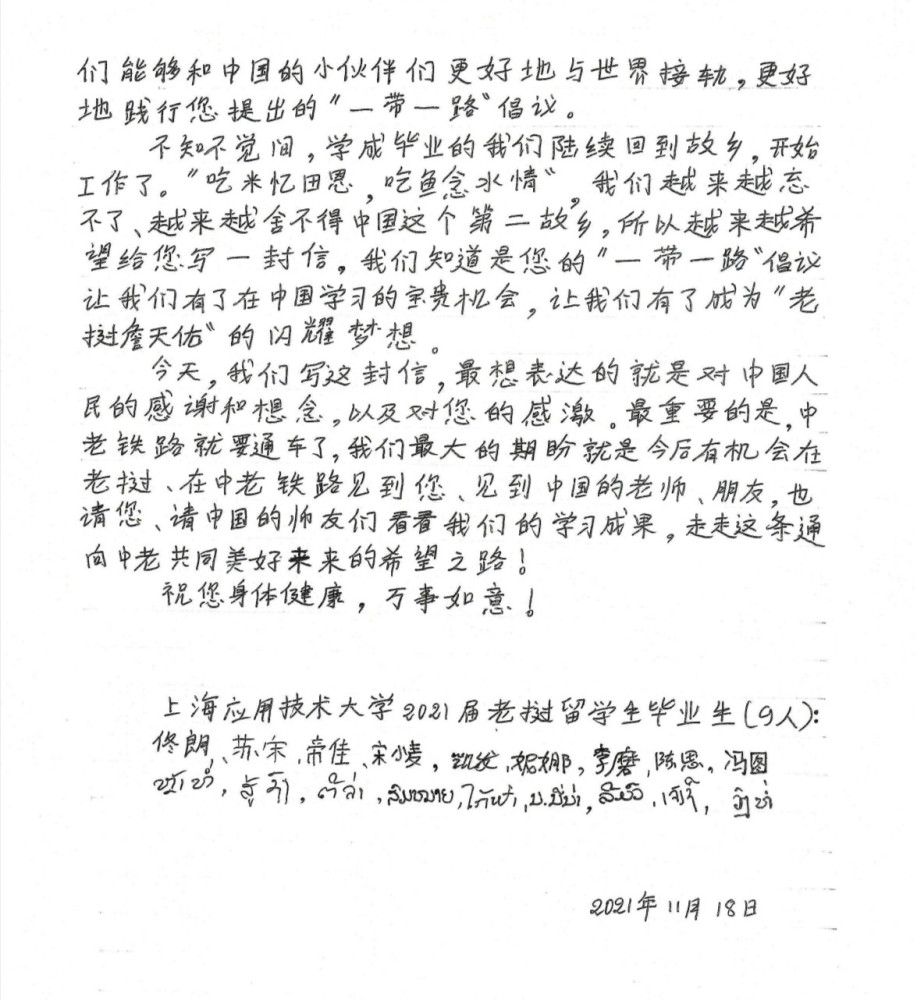 们能够和中国的小伙伴们更好地与世界接轨，更好
地践行您提出的“一带一路“倡议。
不知不觉间，学成毕业的我们陆续回到故乡，开始
工作了。“吃米忆田恩，吃鱼念水情“，我们越来越忘
不了、越来越舍不得中国这个第二故乡，所以越来越希
望给您写一封信，我们知道是您的“一带一路“倡议
让我们有了在中国学习的宝贵机会，让我们有了成为“老
挝詹天佑“的闪耀梦想。
今天，我们写这封信，最想表达的就是对中国人
民的感谢和想念，以及对您的感激。最重要的是，中
老铁路就要通车了，我们最大的期盼就是今后有机会在
老挝、在中老铁路见到您、见到中国的老师、朋友，也
请您、请中国的师友们看看我们的学习成果，走走这条通
向中老共同美好来来的希望之路！
祝您身体健康，万事如意！
上海应用技术大学2021届老挝留学生毕业生(9人)：
佟朗、苏宋、帝佳、宋小麦，凯发，妮娜，李磨，陈恩，冯图
2021年11月18日